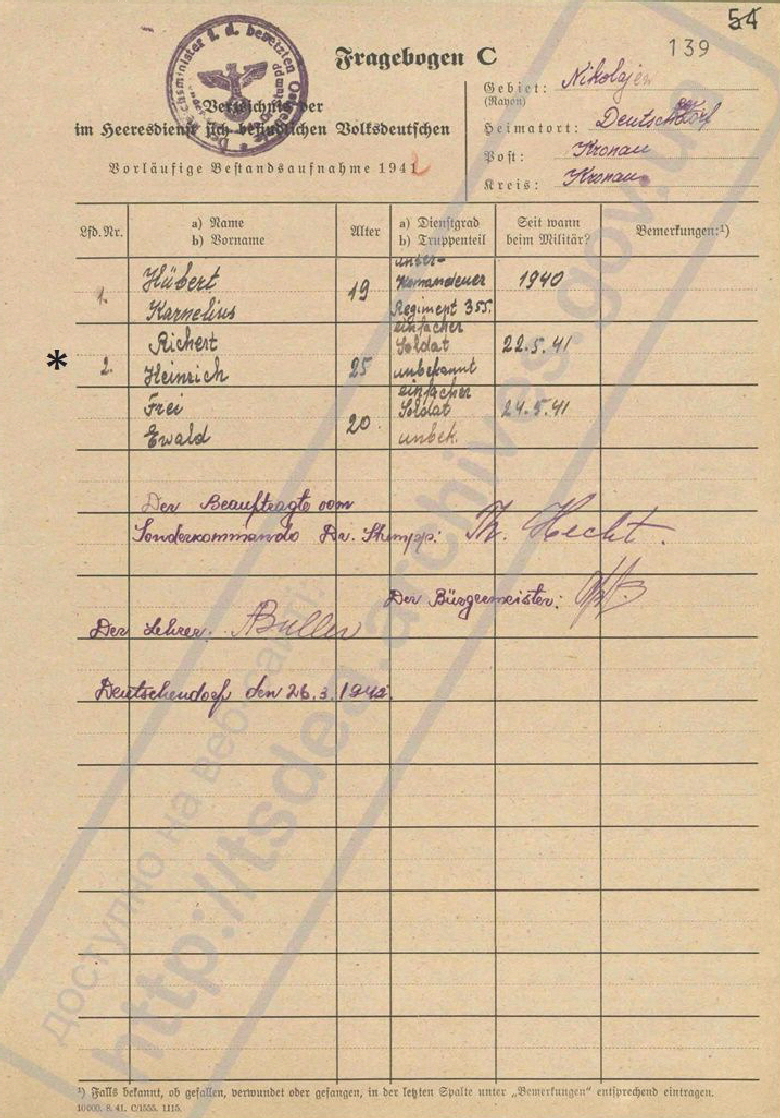 54
139
Fragebogen C
Verzeichnis der
im Heeresdienst sich befindlichen Volksdeutschen
Vorläufige Bestandsaufnahme 1942
Gebiet: Nikolajew
(Rayon)
Heimatort: Deutschendorf
Post: Kronau
Kreis: Kronau
Lfd. Nr.
a) Name
b) Vorname
Alter
a) Dienstgrad
b) Truppenteil
Seit wann
beim Militär?
Bemerkungen:¹)
1.
Hübert
Kornelius
19
unter-
Komandeuer
Regiment 355.
1940
*
2.
Richert
Heinrich
25
einfacher
Soldat
unbekannt
22.5.41
Frei
Ewald
20
einfacher
Soldat
unbek.
24.5.41
Der Beauftragte vom
Sonderkommando Dr. Stumpp: Th. Hecht.
Der Bürgermeister:
Der Lehrer: ABuller
Deutschendorf den 26.3.1942.
¹) Falls bekannt, ob gefallen, verwundet oder gefangen, in der letzten Spalte unter „Bemerkungen" entsprechend eintragen.
10000. 8. 41. C/1553. 1115.
доступно на веб-сайті:
http://tsdea.archives.gov.ua